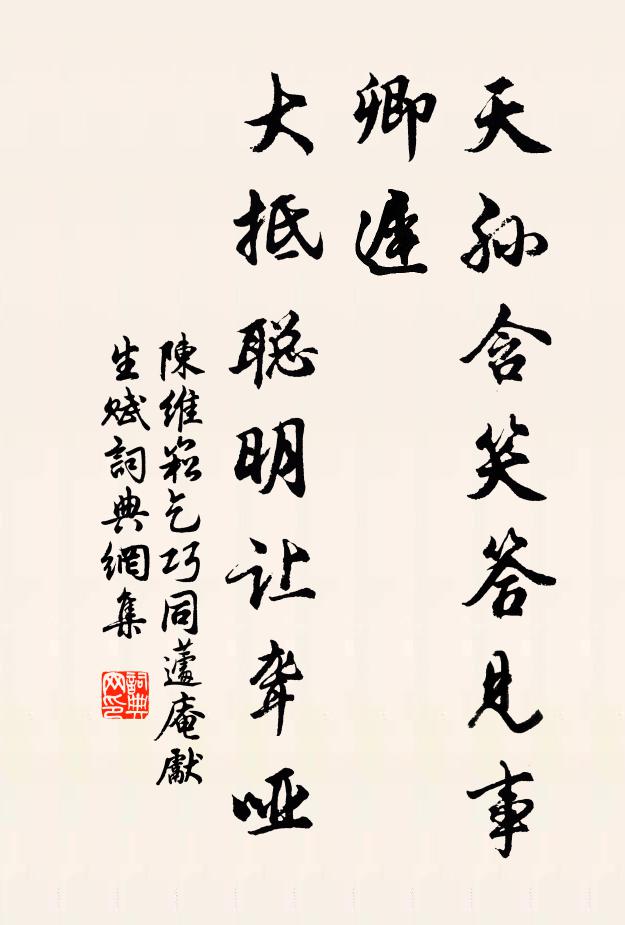 天孙含笑答见事
卿遲
大抵聪明让聋哑
陳維崧乞巧同蘧庵獻
生赋詞典網集
詞典
网印